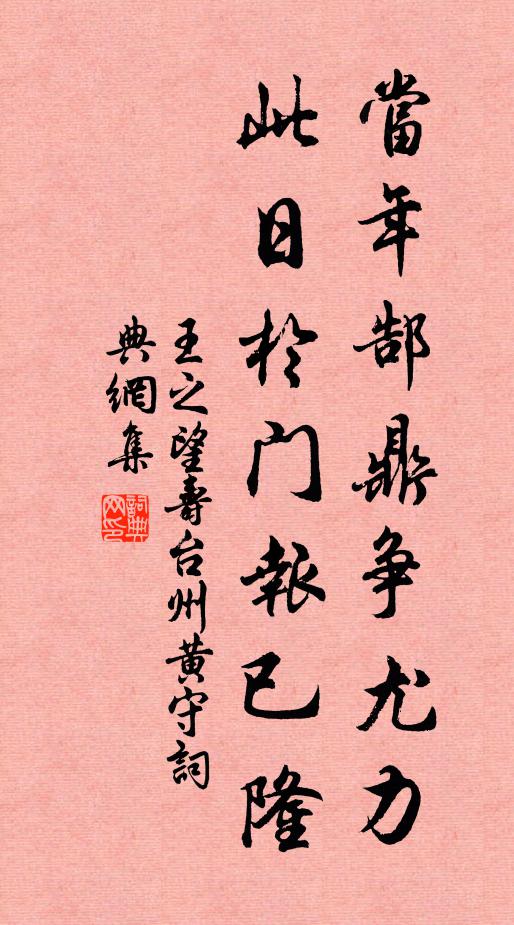 當年郜鼎争尤力
此日於门報已隆
王之望壽台州黄守詞
典網集
詞典网印